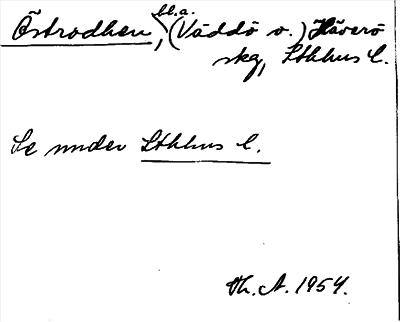 Östrodhen, bl.a. (Väddö o.) Häverö
skg, Sthlms l.
Se under Sthlms l.
Th. A. 1954.